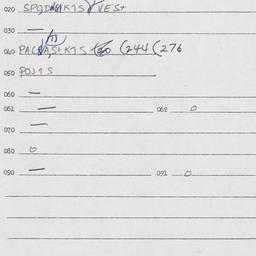 020 VEST
030 —
040 (244 (276
050 POJ1S
060 —
061 — 062 0
070 —
080 0
090 — 091 0